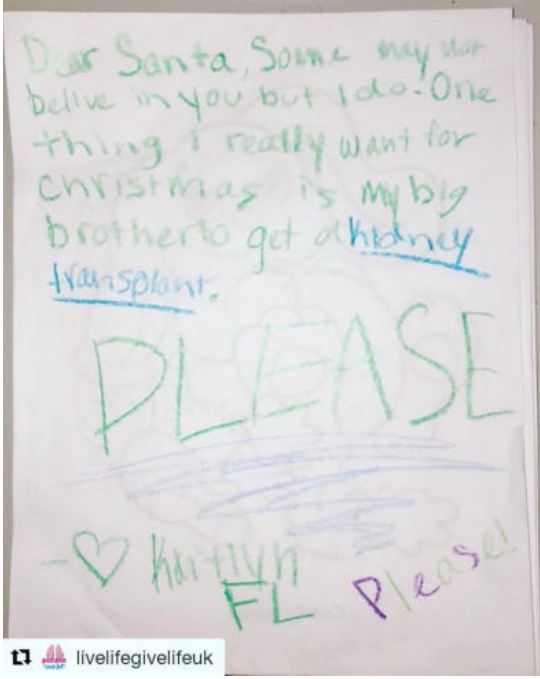 Dear Santa, Some may not
belive in you but I do. One
thing i really want for
christmas is my big
brother to get a kidney
transplant.
PLEASE
- ♡ Kaitlyn
FL Please!
livelifegivelifeuk